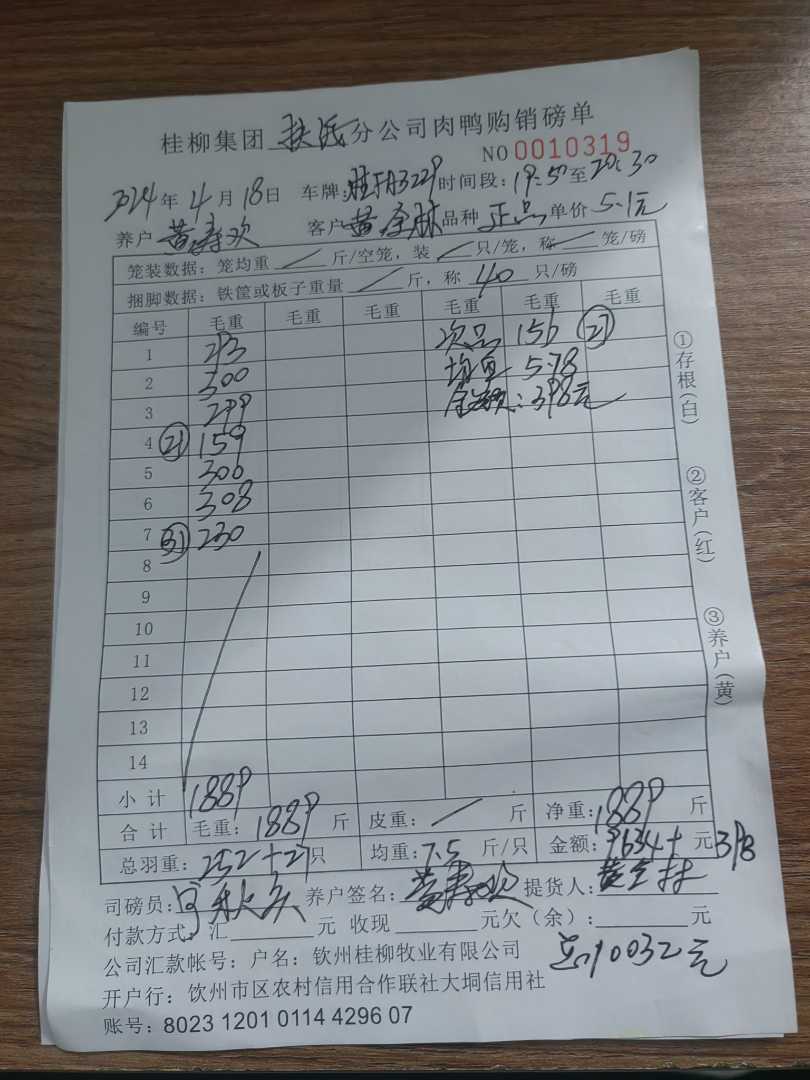 桂柳集团 扶 分公司肉鸭购销磅单
NO 0010319
2024 年 4 月 18 日 车牌: A3229 时间段: 19:50 至 20:30
养户 黄寿欢 客户 黄全林 品种 正品 单价 5.1元
笼装数据: 笼均重 / 斤/空笼, 装 / 只/笼, 称 / 笼/磅
捆脚数据: 铁筐或板子重量 / 斤, 称 40 只/磅
编号 毛重 毛重 毛重 毛重 毛重 毛重
1 293 次品 156 (21)
2 300 均重 5.78
3 299 金额: 398元
4 (21) 159
5 300
6 308
7 (31) 230
8
9
10
11
12
13
14
小计 1889
合计 毛重: 1889 斤 皮重: / 斤 净重: 1889 斤
总羽重: 252+27只 均重: 7.5 斤/只 金额: 9634+ 元 398
司磅员: 养户签名: 黄寿欢 提货人: 黄全林
付款方式: 汇 元 收现 元欠(余): 元
公司汇款帐号: 户名: 钦州桂柳牧业有限公司 总10032元
开户行: 钦州市区农村信用合作联社大垌信用社
账号: 8023 1201 0114 4296 07
①存根(白)
②客户(红)
③养户(黄)